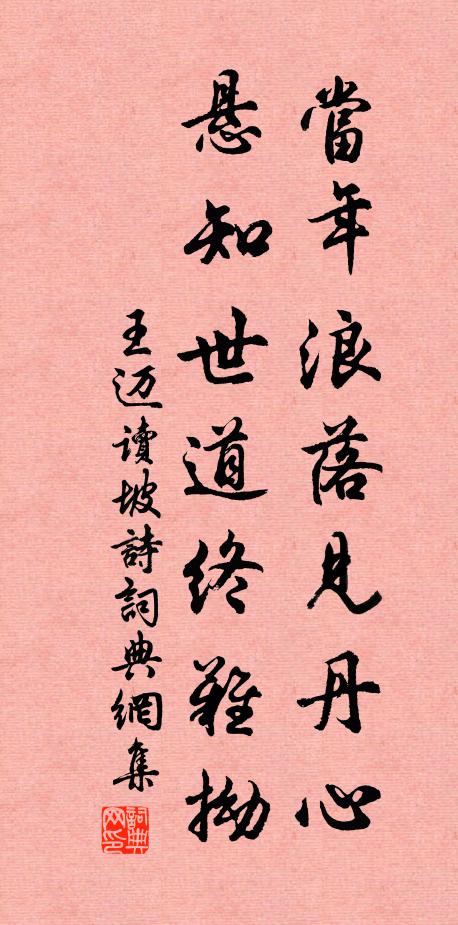 當年浪落見丹心
悬知世道终難拗
王迈讀坡詩詞典網集
詞典网印